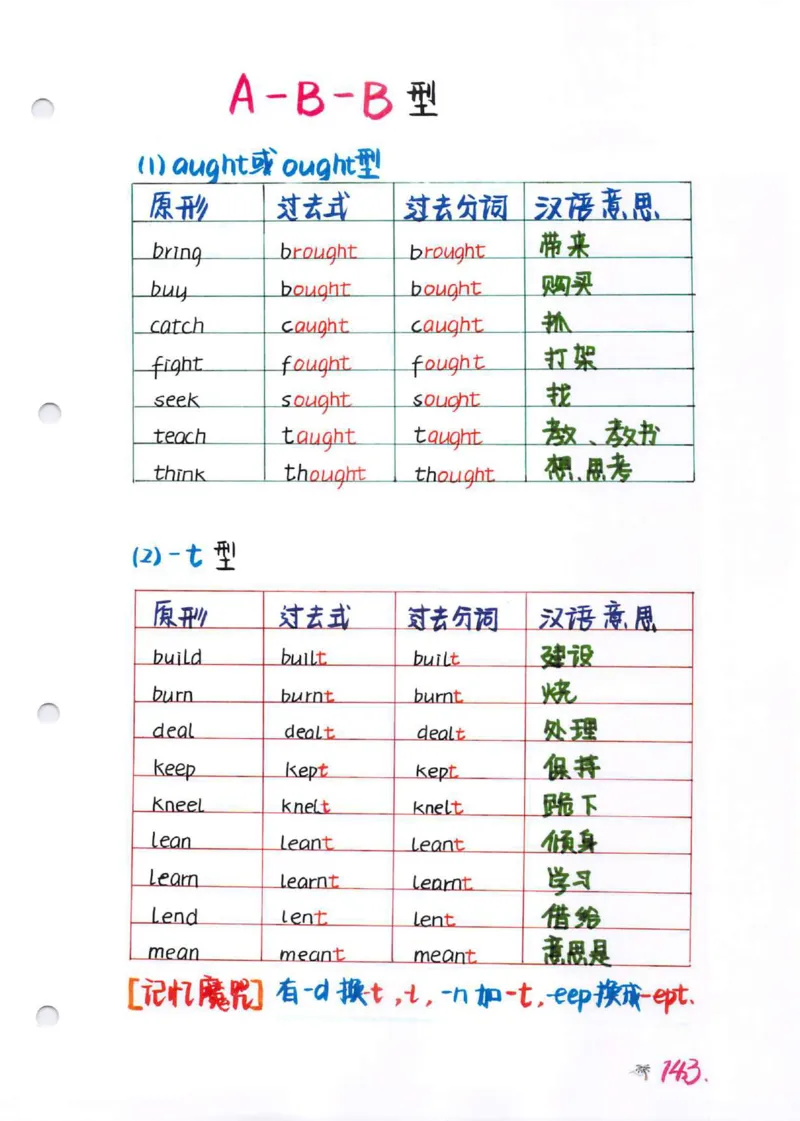 A-B-B型
(1) aught或ought型
原形 过去式 过去分词 汉语意思
bring brought brought 带来
buy bought bought 购买
catch caught caught 抓
fight fought fought 打架
seek sought sought 找
teach taught taught 教、教书
think thought thought 想、思考
(2) -t 型
原形 过去式 过去分词 汉语意思
build built built 建设
burn burnt burnt 烧
deal dealt dealt 处理
keep kept kept 保持
kneel knelt knelt 跪下
lean leant leant 倾身
learn learnt learnt 学习
lend lent lent 借给
mean meant meant 意思是
[记忆魔咒] 有-d换-t,-l,-n加-t,-eep换成-ept.
143.